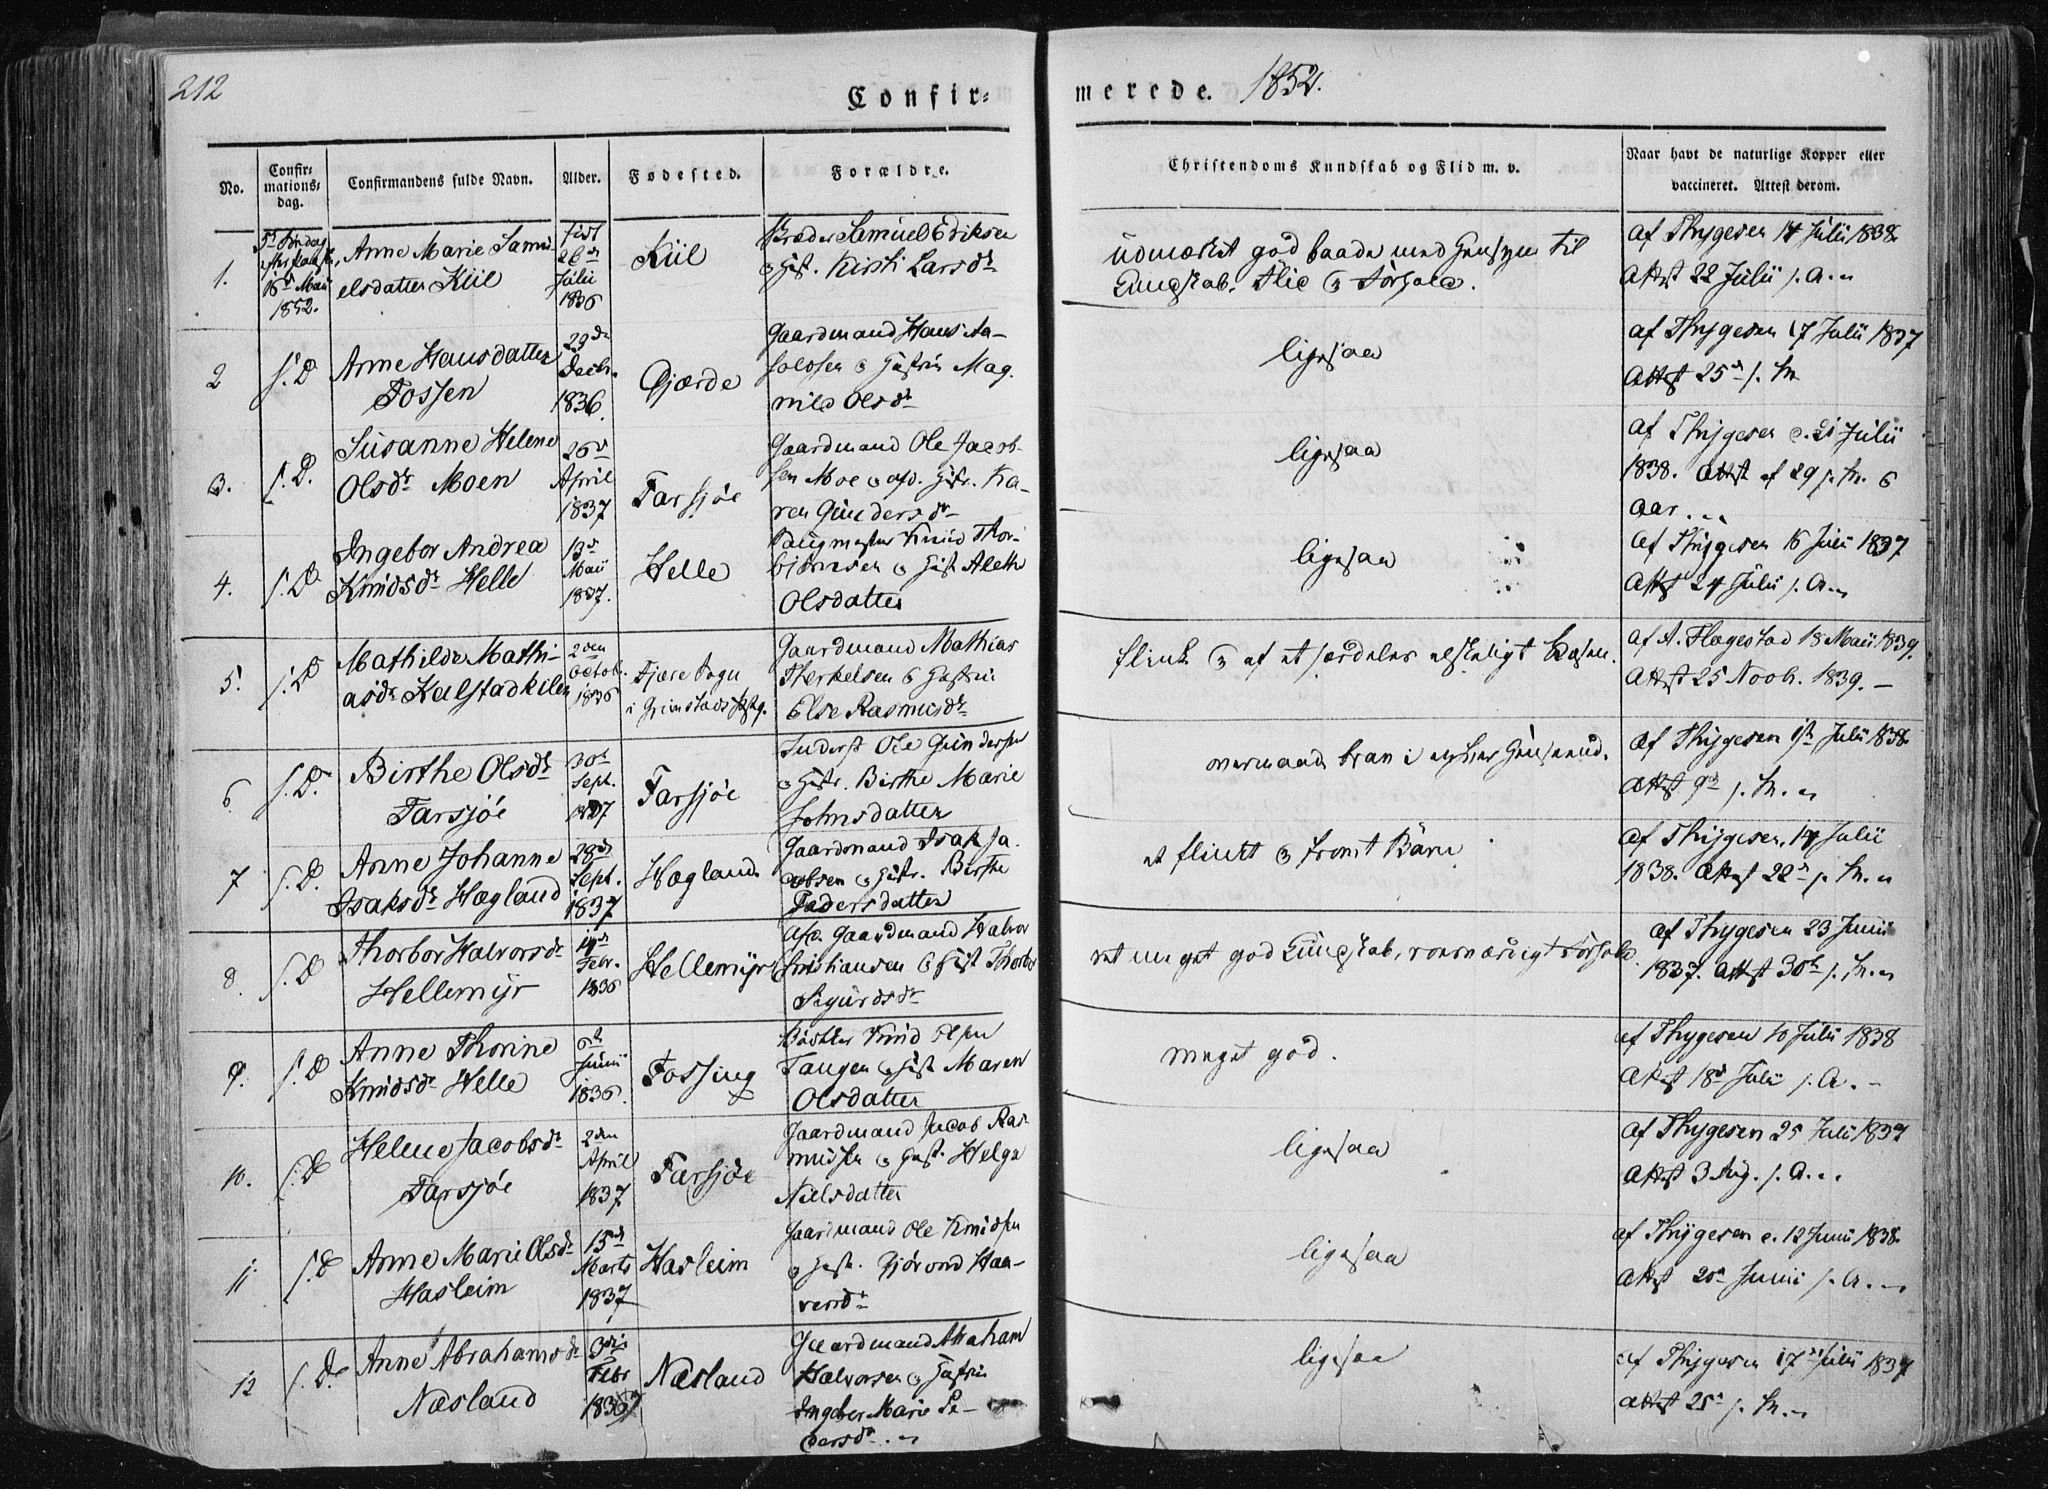 212
Confir-
merede. 1852.
No.
Confir-
mations-
dag.
Confirmandens fulde Navn.
Alder.
Fødested.
Forældre.
Christendoms Kundskab og Flid m. v.
Naar havt de naturlige Kopper eller
vaccineret. Attest derom.
1.
16de Maii
1852.
Anne Marie Samu-
elsdatter Kiil
født
26de
Julii
1836
Kiil
Samuel Eriksen
& Hust. Kirsti Larsdr
udmærket god baade med Hensyn til
Kundskab, Flid & Forhold.
af Thygesen 14 Julii 1838.
Attest 22 Julii s. A.
2
s. D
Anne Hansdatter
Fossen
29de
Decbr.
1836.
Gjærde
Gaardmand Hans Aa-
& Hustrue Mag-
nild Olsdr
ligesaa
af Thygesen 17 Julii 1837
Attest 25de s. M.
3.
s. D.
Susanne Helene
Olsdr Moen
26de
April
1837
Tarsjøe
Gaardmand Ole Jacob-
sen Moe & afd. Hustr. Ka-
ren Gundersdr
ligesaa
af Thygesen d. 21 Julii
1838. Attest af 29 s. M. &
Aar.
4.
s. D
Ingebor Andrea
Knudsdr Helle
13de
Maii
1837.
Helle
Knud Thor-
bjørnsen & Hust Aleth
Olsdatter
ligesaa
af Thygesen 16 Juli 1837
Attest 24 Julii s. A.
5.
s. D
Mathilde Mathi-
asdr Kalstadkilen
2den
Octob.
1836
Fjære Sogn
i Grimstads Præstg.
Gaardmand Mathias
Therkelsen & Hustrue
Else Rasmusdr
flink & af et særdeles elskeligt Væsen.
af A. Flegestad 18 Maii 1839.
Attest 25 Novb. 1839.
6
s. D.
Birthe Olsdr
Tarsjøe
30te
Sept.
1837
Tarsjøe
Inderst Ole Gundersen
& Hustr. Birthe Marie
Johnsdatter
overmaade brav i enhver Henseende.
af Thygesen Julii 1838.
Attest 9de s. M.
7
s. D.
Anne Johanne
Isaksdr Hægland
28de
Sept.
1837
Hægland
Gaardmand Isak Ja-
cobsen & Hustr. Birthe
Tadersdatter
et flinkt & fromt Barn
af Thygesen, 14 Julii
1838. Attest 22de s. M.
8.
s. D
Thorbor Halvorsdr
Hellemyr
Febr.
1836
Hellemyr
Afd. Gaardmand Halvor
Christiansen & Hust Thorbor
Sigurdsdr
ret meget god Kundskab, roesværdigt Forhold.
af Thygesen 23 Junii
1837. Attest 30te s. M.
9.
s. D
Anne Thorine
Knudsdr Helle
6te
Junii
1836.
Fossing
Knud Olsen
Tangen & Hust Maren
Olsdatter
meget god.
af Thygesen 10 Julii 1838
Attest 18de Julii s. A.
10.
s. D
Helene Jacobsdr
Tarsjøe
2den
April
1837
Tarsjøe
Gaardmand Jacob Ras-
mussen & Hust. Helga
Nielsdatter
ligesaa
af Thygesen 25 Julii 1837
Attest 3 Aug. s. A.
11.
s. D
Anne Marie Olsdr
Hasleim
15de
Marts
1837
Hasleim
Gaardmand Ole Knudsen
& Hust. Gjørond Haa-
versdr
ligesaa
af Thygesen d. 12 Junii 1838.
Attest 20de Junii s. A.
12
s. D.
Anne Abrahamsdr
Næsland
3die
Febr
1837
Næsland
Gaardmand Abraham
Halvorsen & Hustrue
Ingebor Marie Pe-
dersdr.
ligesaa
af Thygesen 17de Julii 1837
Attest 25de s. M.